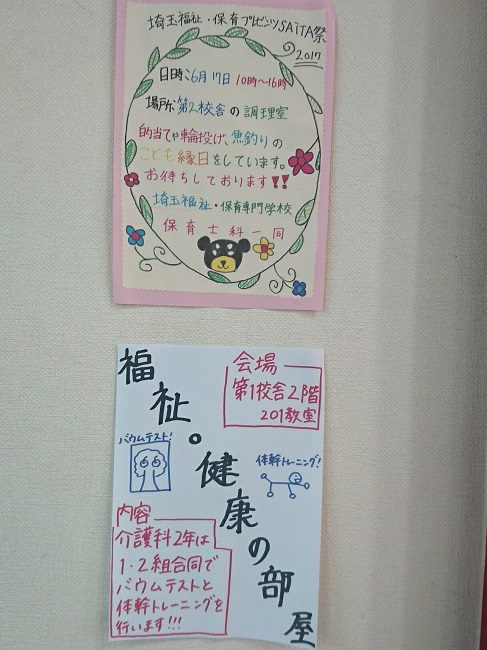 埼玉福祉・保育プレゼンツSAITA祭
2017
日時:6月17日 10時〜16時
場所:第2校舎の調理室
的当てや輪投げ、魚釣りの
こども縁日をしています。
お待ちしております!!
埼玉福祉・保育専門学校
保育士科一同
福祉・健康の部屋
会場
第1校舎2階
201教室
バウムテスト!
体幹トレーニング!
内容
介護科2年は
1・2組合同で
バウムテストと
体幹トレーニングを
行います!!!